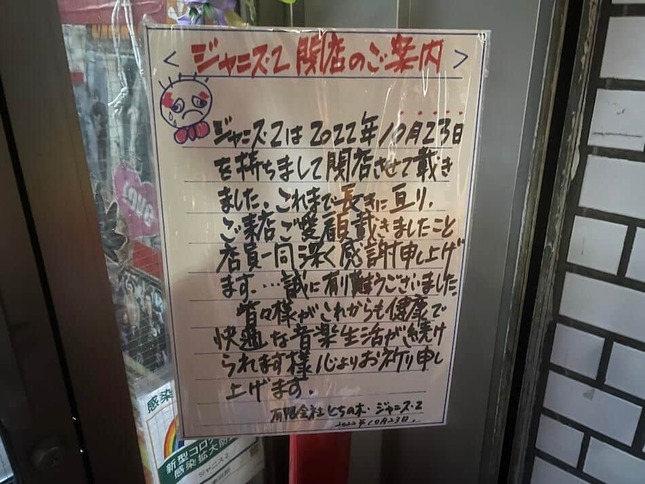 <ジャニス・2 閉店のご案内>
ジャニス・2は2022年10月23日
を持ちまして閉店させて戴き
ました。これまで長きに亘り、
ご来店ご愛顧戴きましたこと
店員一同深く感謝申し上げ
ます…誠に有難うございました
皆々様がこれからも健康で
快適な音楽生活が続け
られます様心よりお祈り申し
上げます。
有限会社とちの木・ジャニス・2
2022年10月23日.
LOVE
感染
新型コロ
感染拡大防
ジャニス2